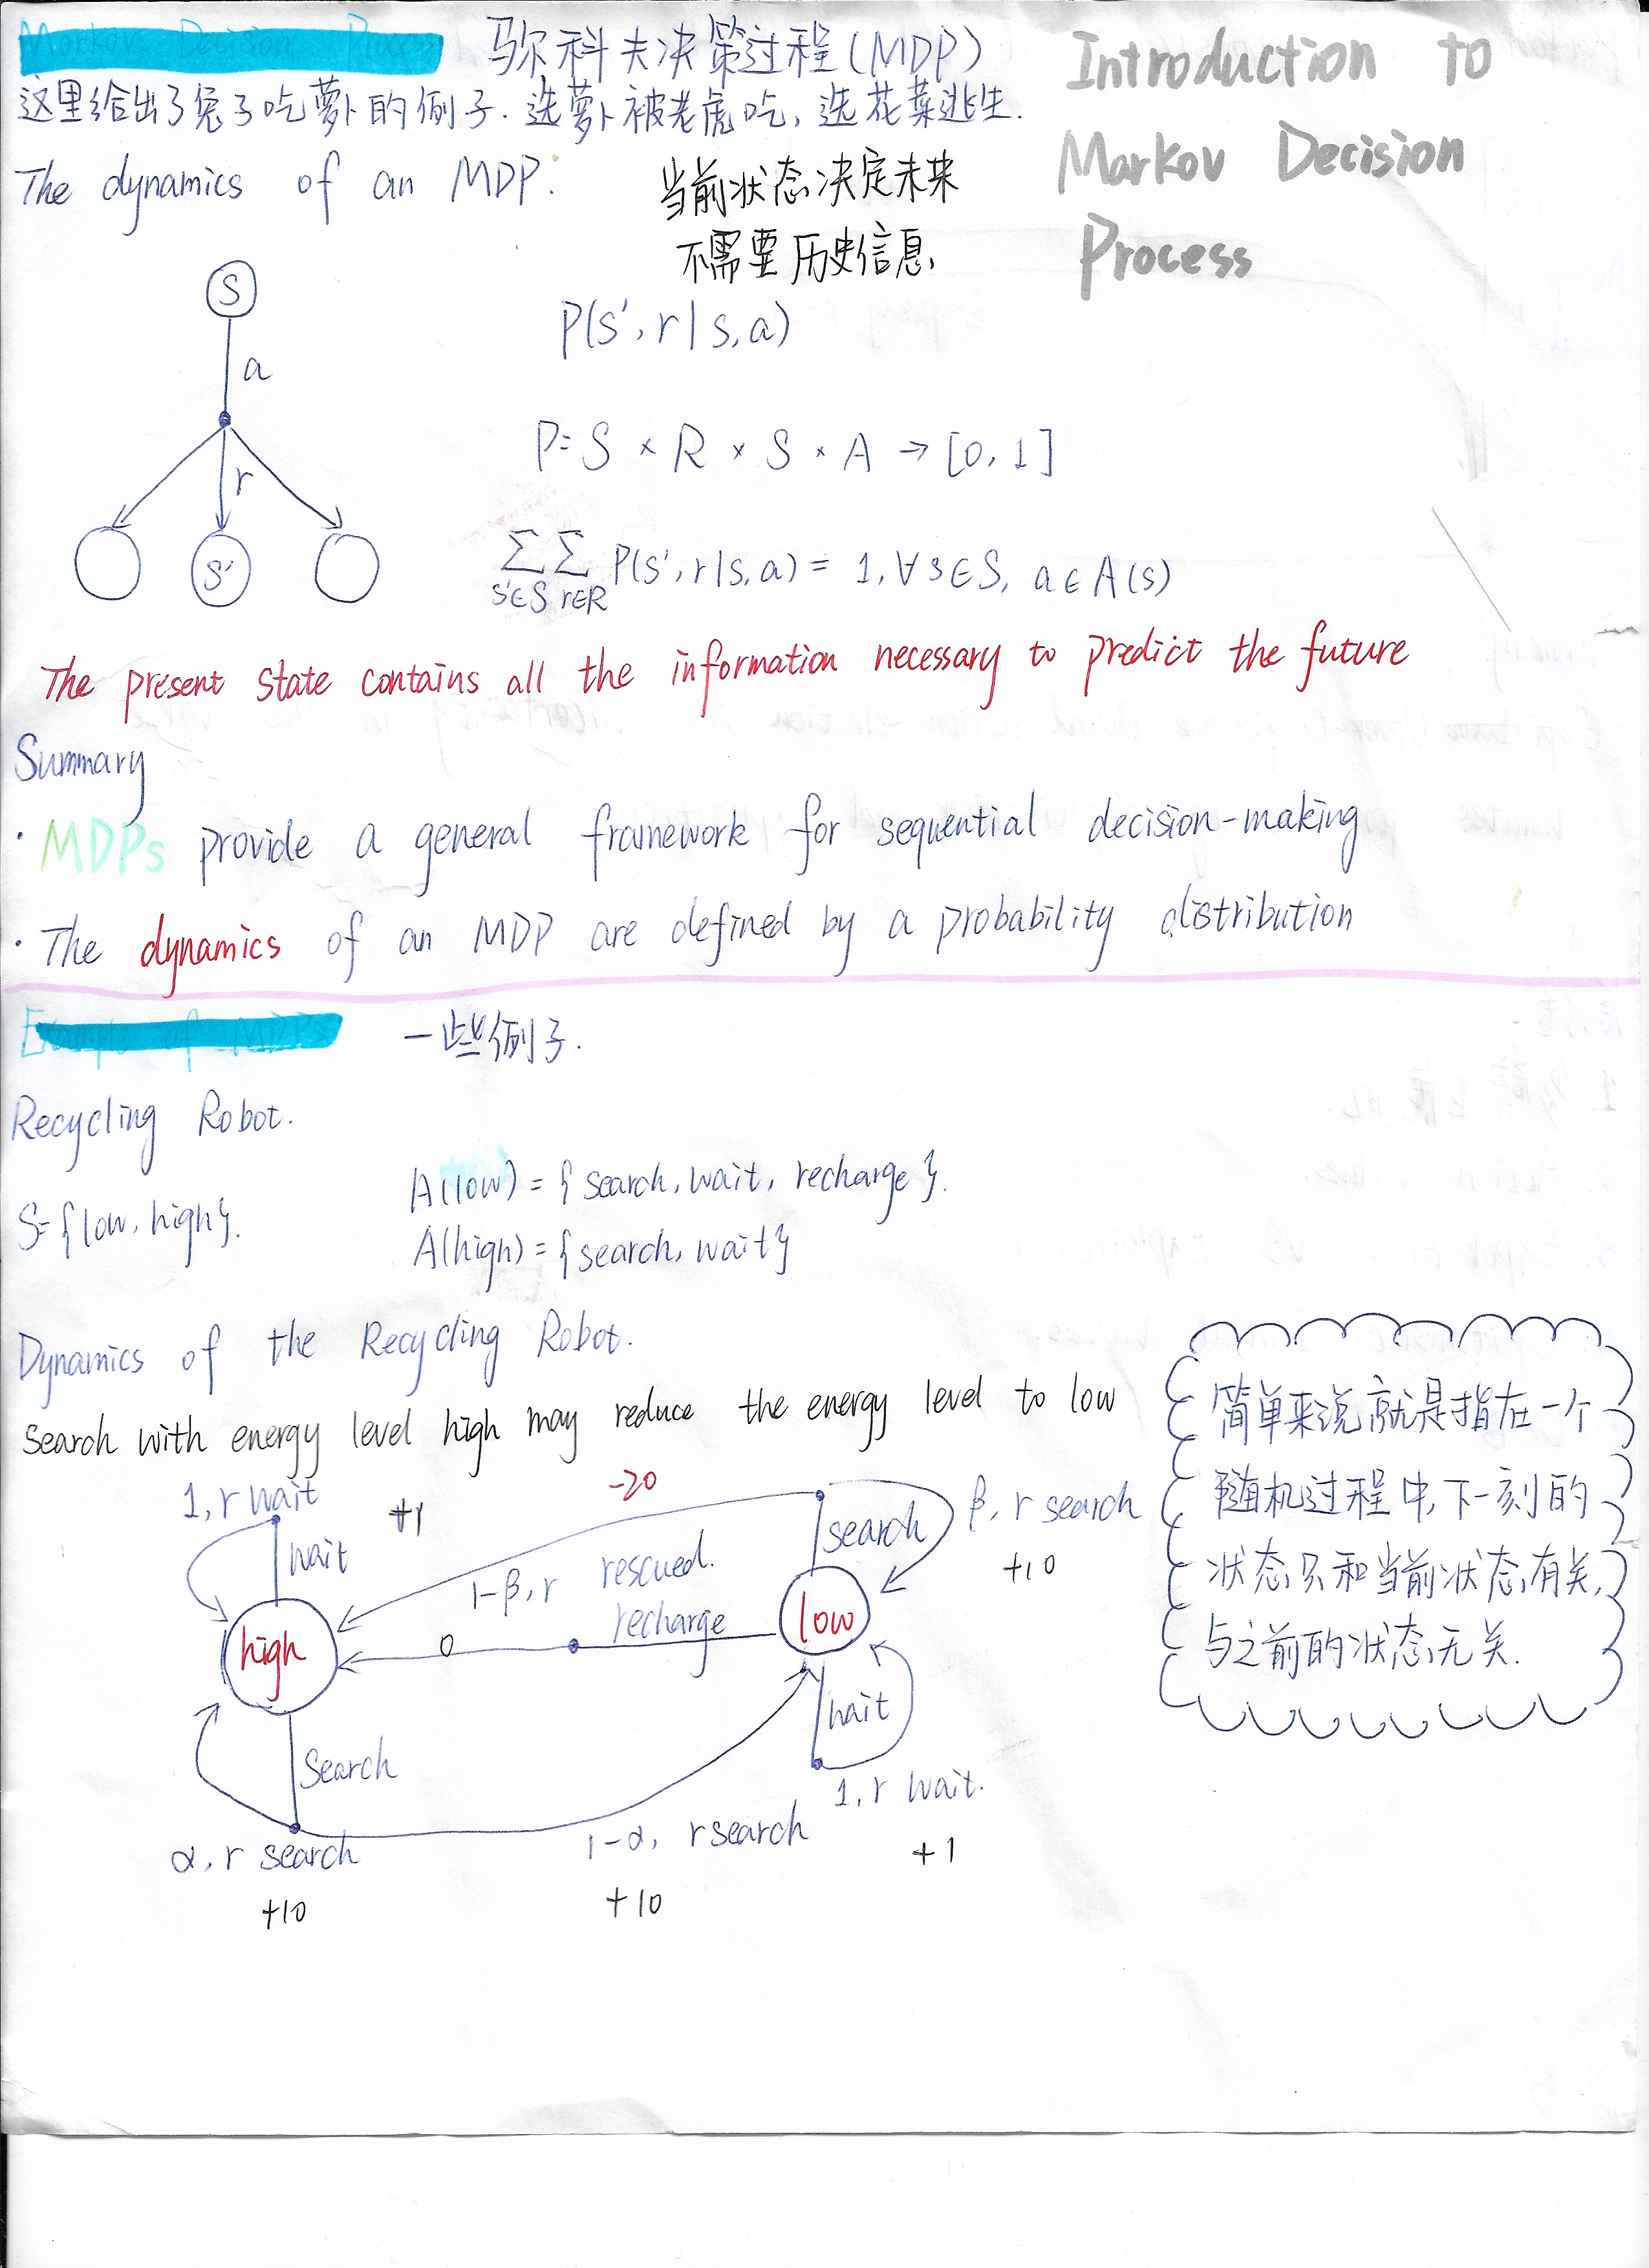 Markov Decision Process 马尔科夫决策过程(MDP)
Introduction to
Markov Decision
Process
这里给出了兔子吃萝卜的例子.选萝卜被老虎吃,选花菜逃生.
The dynamics of an MDP:
当前状态决定未来
不需要历史信息
S
a
r
S'
P(s', r | s, a)
P: S × R × S × A → [0, 1]
∑ ∑ P(s', r | s, a) = 1, ∀ s ∈ S, a ∈ A(s)
s'∈S r∈R
The present state contains all the information necessary to predict the future
Summary
· MDPs provide a general framework for sequential decision-making
· The dynamics of an MDP are defined by a probability distribution
Example of MDPs 一些例子.
Recycling Robot.
S={low, high}.
A(low) = { search, wait, recharge }.
A(high) = { search, wait }
Dynamics of the Recycling Robot.
Search with energy level high may reduce the energy level to low
1, r wait
+1
wait
-20
1-β, r rescued.
search
β, r search
+10
high
0
recharge
low
wait
1, r wait.
+1
Search
α, r search
+10
1-α, r search
+10
简单来说就是指在一个
随机过程中,下一刻的
状态只和当前状态有关,
与之前的状态无关.